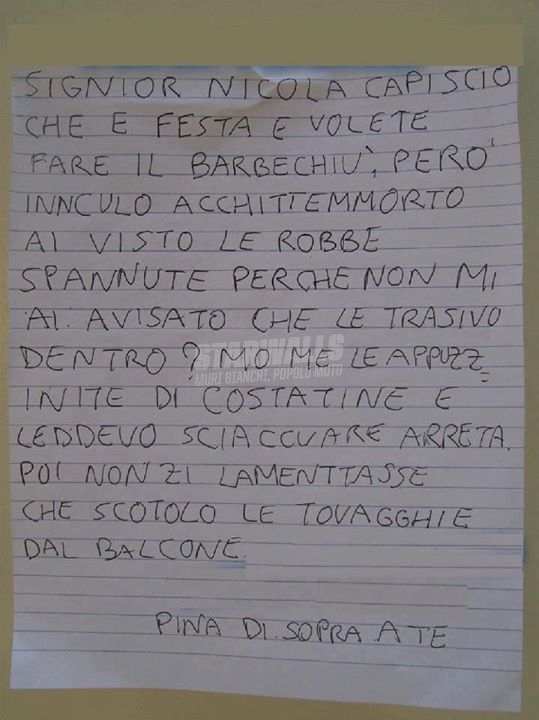 SIGNIOR NICOLA CAPISCIO
CHE E FESTA E VOLETE
FARE IL BARBECHIÙ, PERO'
INNCULO ACCHITTEMMORTO
AI VISTO LE ROBBE
SPANNUTE PERCHE NON MI
AI. AVISATO CHE LE TRASIVO
DENTRO? MO ME LE APPUZZ
STARWALLS
MURI BIANCHI, POPOLO MUTO
INITE DI COSTATINE E
LEDDEVO SCIACCUARE ARRETA.
POI NON ZI LAMENTTASSE
CHE SCOTOLO LE TOVAGGHIE
DAL BALCONE.
PINA DI. SOPRA. A TE